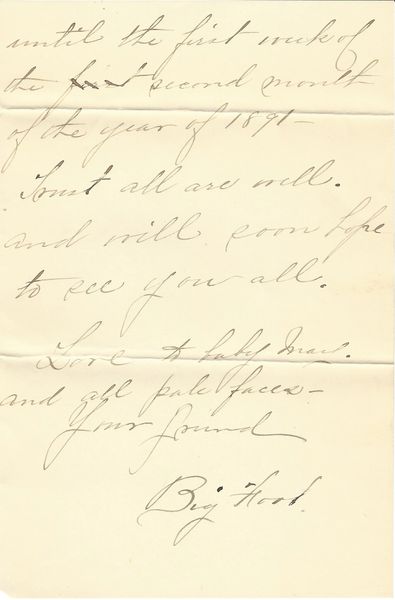 until the first week of
the first second month
of the year of 1891—
Trust all are well.
and will soon hope
to see you all.
Love to baby May.
and all pale faces—
Your friend
Big Foot.